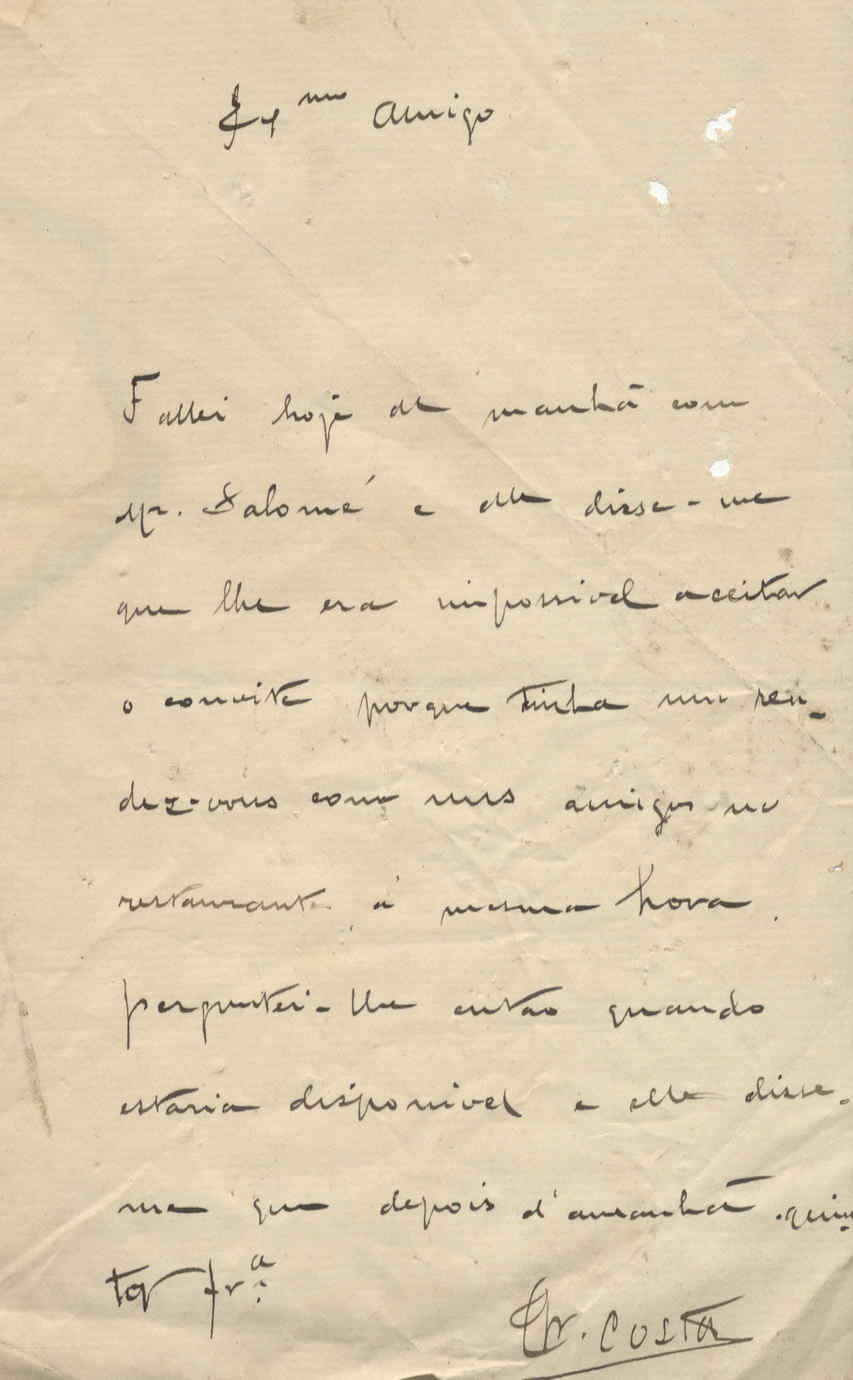 Exmo Amigo
Fallei hoje de manhã com
Mr. Salomé e elle disse-me
que lhe era impossivel acceitar
o convite porque tinha um ren-
dez-vous com uns amigos no
restaurante á mesma hora.
Perguntei-lhe então quando
estaria disponivel e elle disse-
me que depois d'amanhã quin-
ta fra.
Costa